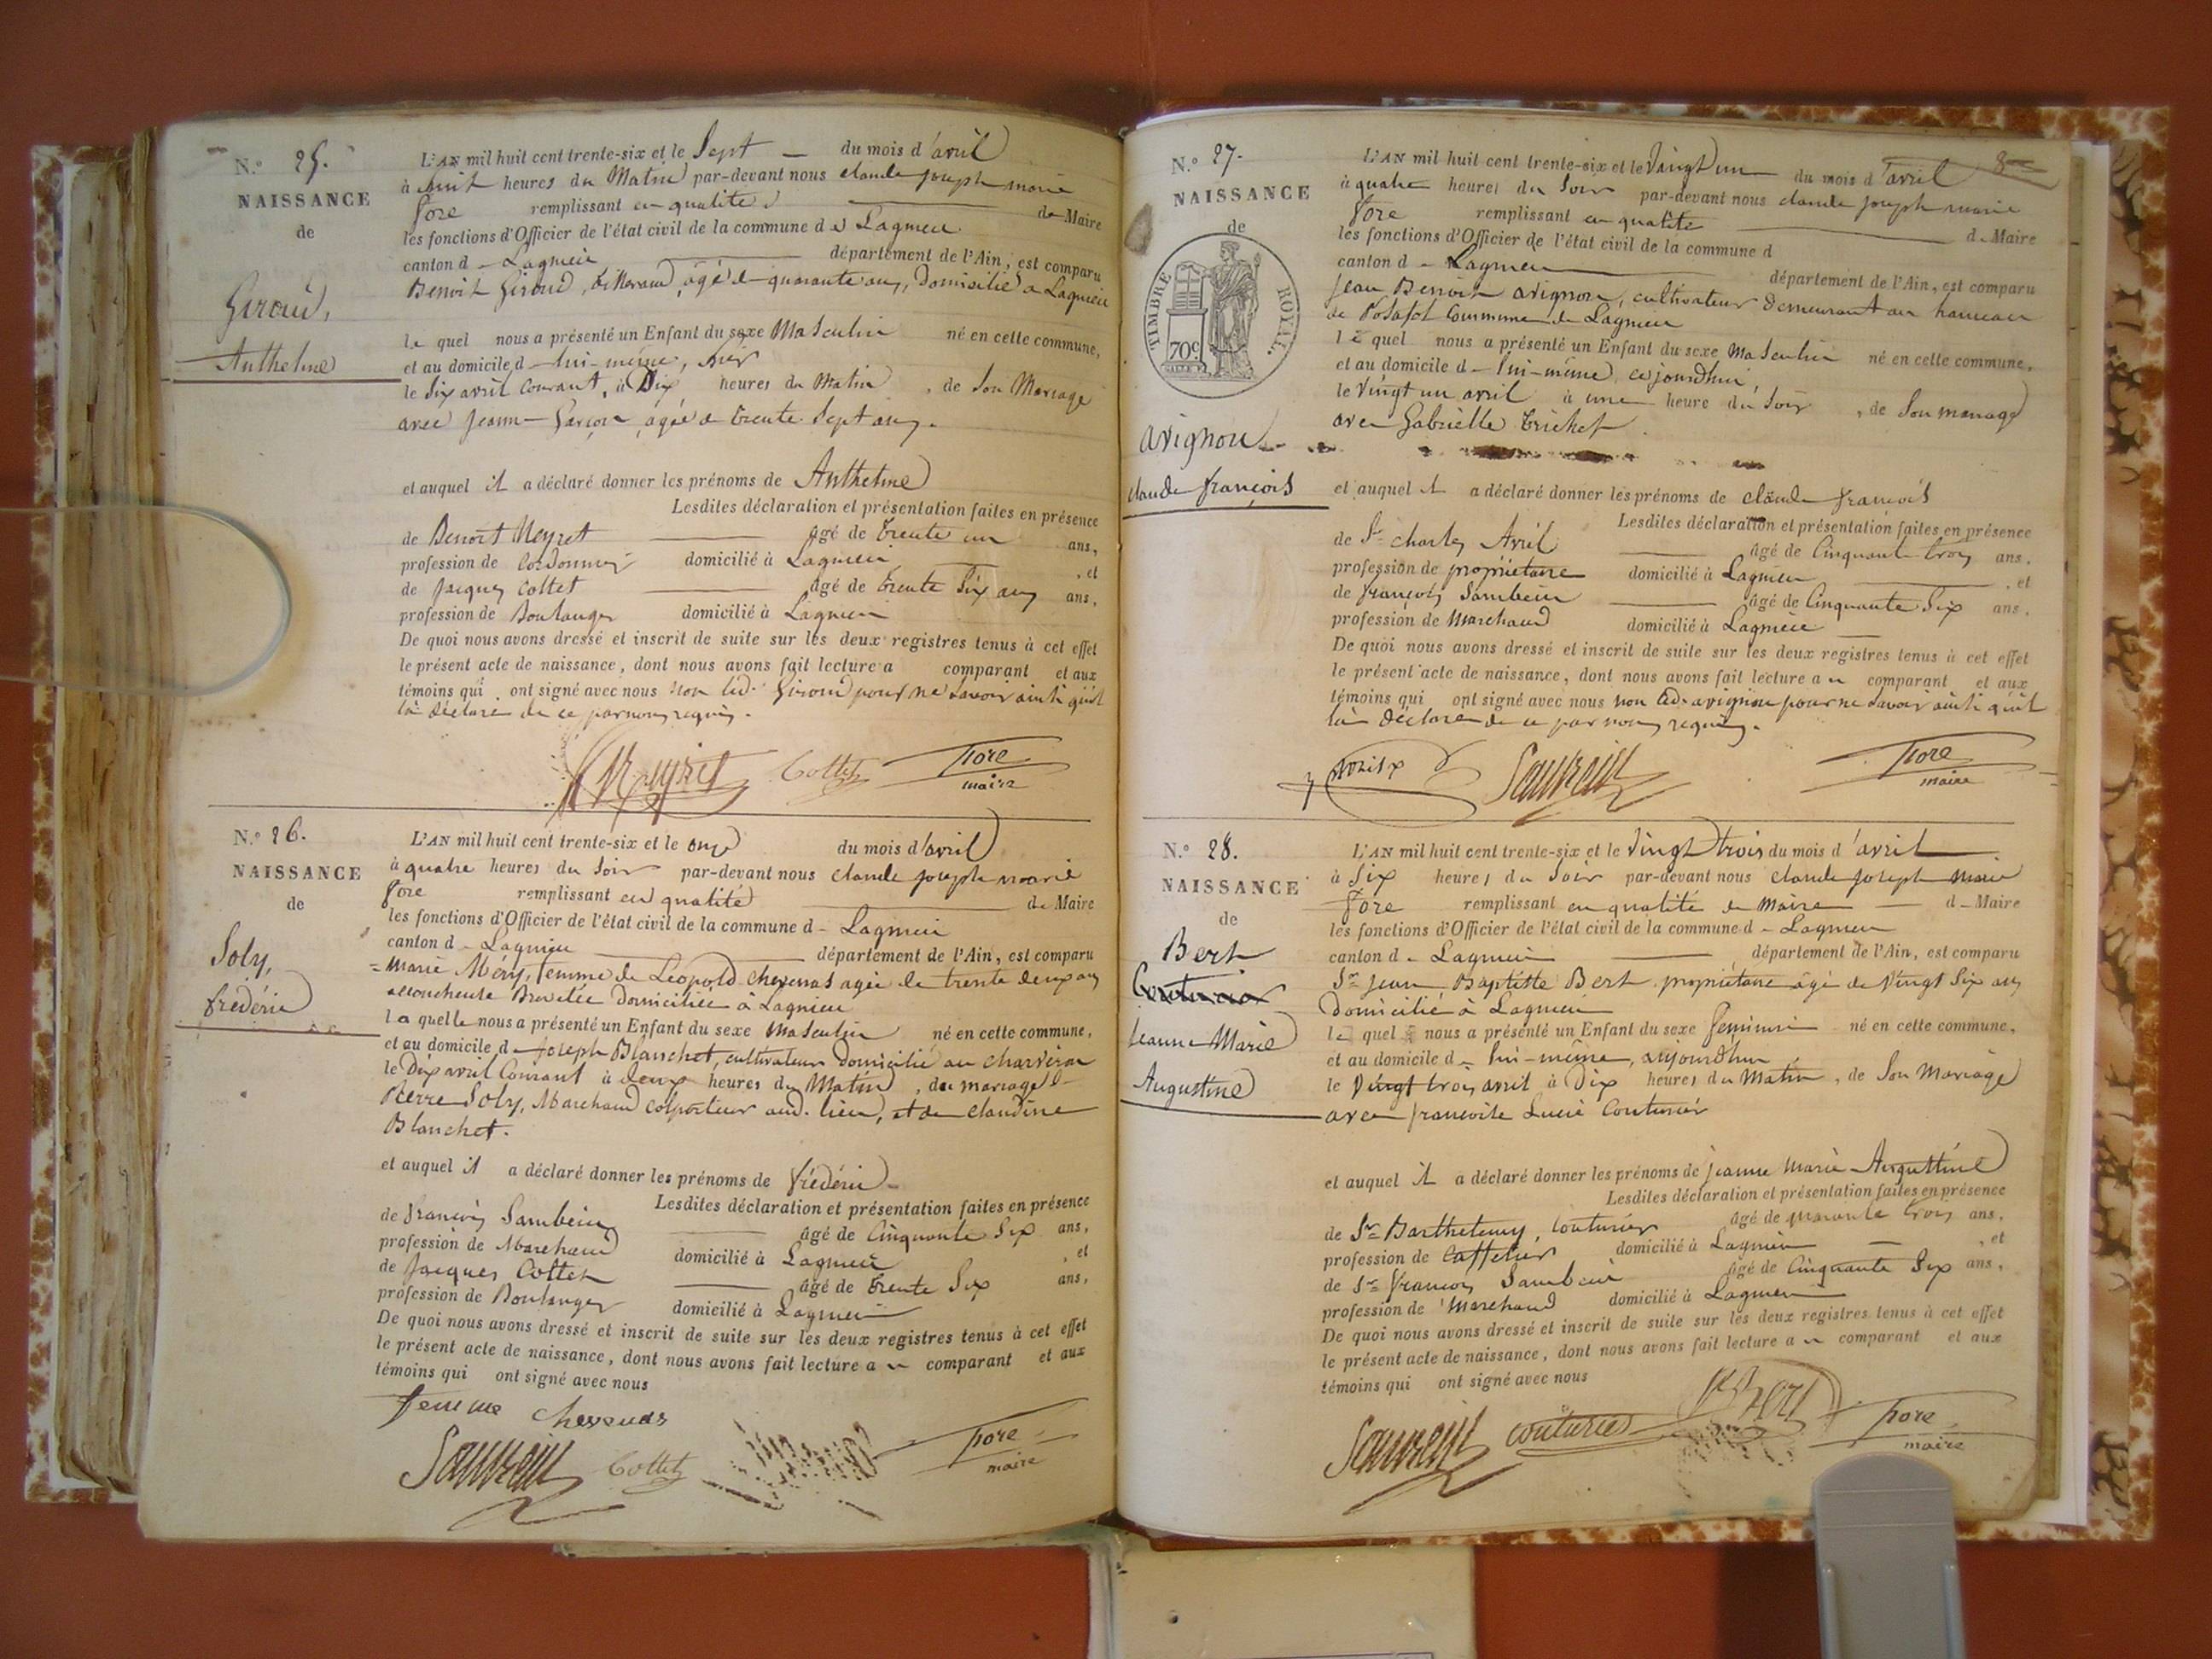 N.° 25.
NAISSANCE
de
Giroud,
Anthelme
L'AN mil huit cent trente-six et le Sept — du mois d'avril
à huit heures du Matin par-devant nous claude joseph marie
fore remplissant en qualité de Maire
les fonctions d'Officier de l'état civil de la commune de Lagnieu
canton d - Lagnieu département de l'Ain, est comparu
Benoit Giroud, agé de quarante ans, Domicilié a Lagnieu
le quel nous a présenté un Enfant du sexe Masculin né en cette commune,
et au domicile d - lui-même, hier
le Six avril courant, à Dix heures du Matin, de Son Mariage
avec jeanne agée de trente Sept ans.
et auquel il a déclaré donner les prénoms de Anthelme
Lesdites déclaration et présentation faites en présence
de Benoit Neyret agé de trente un ans,
profession de Cordonnier domicilié à Lagnieu, et
de Jacques Cottet agé de trente Six ans ans,
profession de Boulanger domicilié à Lagnieu
De quoi nous avons dressé et inscrit de suite sur les deux registres tenus à cet effet
le présent acte de naissance, dont nous avons fait lecture a comparant et aux
témoins qui ont signé avec nous non led. Giroud pour ne Savoir ainsi qu'il
là déclaré de ce par nous requis.
Neyret Cottet fore
maire
N.° 26.
NAISSANCE
de
Soly,
frédéric
L'AN mil huit cent trente-six et le onze du mois d'avril
à quatre heures du Soir par-devant nous claude joseph marie
fore remplissant en qualité de Maire
les fonctions d'Officier de l'état civil de la commune d - Lagnieu
canton d - Lagnieu département de l'Ain, est comparu
Marie Méry, femme de Léopold Chevenas agée de trente deux ans
accoucheuse Brevetée Domiciliée à Lagnieu
la quelle nous a présenté un Enfant du sexe Masculin né en cette commune,
et au domicile d - Joseph Blanchet, cultivateur Domicilié au Charveron
le Dix avril Courant à deux heures du Matin, du mariage de
Pierre Soly, Marchand Colporteur aud. lieu, et de Claudine
Blanchet.
et auquel il a déclaré donner les prénoms de frédéric
Lesdites déclaration et présentation faites en présence
de françois Sambein agé de Cinquante Six ans,
profession de Marchand domicilié à Lagnieu, et
de Jacques Cottet agé de trente Six ans,
profession de Boulanger domicilié à Lagnieu
De quoi nous avons dressé et inscrit de suite sur les deux registres tenus à cet effet
le présent acte de naissance, dont nous avons fait lecture a comparant et aux
témoins qui ont signé avec nous
femme chevenas
Cottet fore
maire
8
N.° 27.
NAISSANCE
de
TIMBRE ROYAL.
70c
avignon
claude françois
L'AN mil huit cent trente-six et le Vingt un du mois d'avril
à quatre heures du Soir par-devant nous claude joseph marie
fore remplissant en qualité d - Maire
les fonctions d'Officier de l'état civil de la commune d
canton d - Lagnieu département de l'Ain, est comparu
Jean Benoit avignon, cultivateur Demeurant au hameau
de Posafol Commune de Lagnieu
le quel nous a présenté un Enfant du sexe Masculin né en cette commune,
et au domicile d - lui-même, cejourdhui,
le Vingt un avril à une heure du Soir, de Son mariage
avec Gabrielle trichet
et auquel il a déclaré donner les prénoms de claude françois
Lesdites déclaration et présentation faites en présence
de Sr charles Avril agé de Cinquante trois ans.
profession de propriétaire domicilié à Lagnieu, et
de françois Sambein agé de Cinquante Six ans,
profession de Marchand domicilié à Lagnieu
De quoi nous avons dressé et inscrit de suite sur les deux registres tenus à cet effet
le présent acte de naissance, dont nous avons fait lecture a comparant et aux
témoins qui ont signé avec nous non led. avignon pour ne Savoir ainsi qu'il
là déclaré de ce par nous requis.
fore
maire
N.° 28.
NAISSANCE
de
Bert
Couturier
Jeanne Marie
Augustine
L'AN mil huit cent trente-six et le Vingt trois du mois d'avril
à Six heures du Soir par-devant nous claude joseph marie
fore remplissant en qualité de Maire d - Maire
les fonctions d'Officier de l'état civil de la commune d - Lagnieu
canton d - Lagnieu département de l'Ain, est comparu
Sr Jean Baptiste Bert propriétaire agé de Vingt Six ans
Domicilié à Lagnieu
le quel nous a présenté un Enfant du sexe feminin né en cette commune,
et au domicile d - lui-même, aujourdhui
le Vingt trois avril à Dix heures du Matin, de Son Mariage
avec françoise Lucie Couturier
et auquel il a déclaré donner les prénoms de jeanne Marie Augustine
Lesdites déclaration et présentation faites en présence
de Sr Barthelemy Couturier agé de quarante trois ans,
profession de Caffetier domicilié à Lagnieu, et
de Sr françois Sambein agé de Cinquante Six ans,
profession de Marchand domicilié à Lagnieu
De quoi nous avons dressé et inscrit de suite sur les deux registres tenus à cet effet
le présent acte de naissance, dont nous avons fait lecture a comparant et aux
témoins qui ont signé avec nous
couturier Bert fore
maire